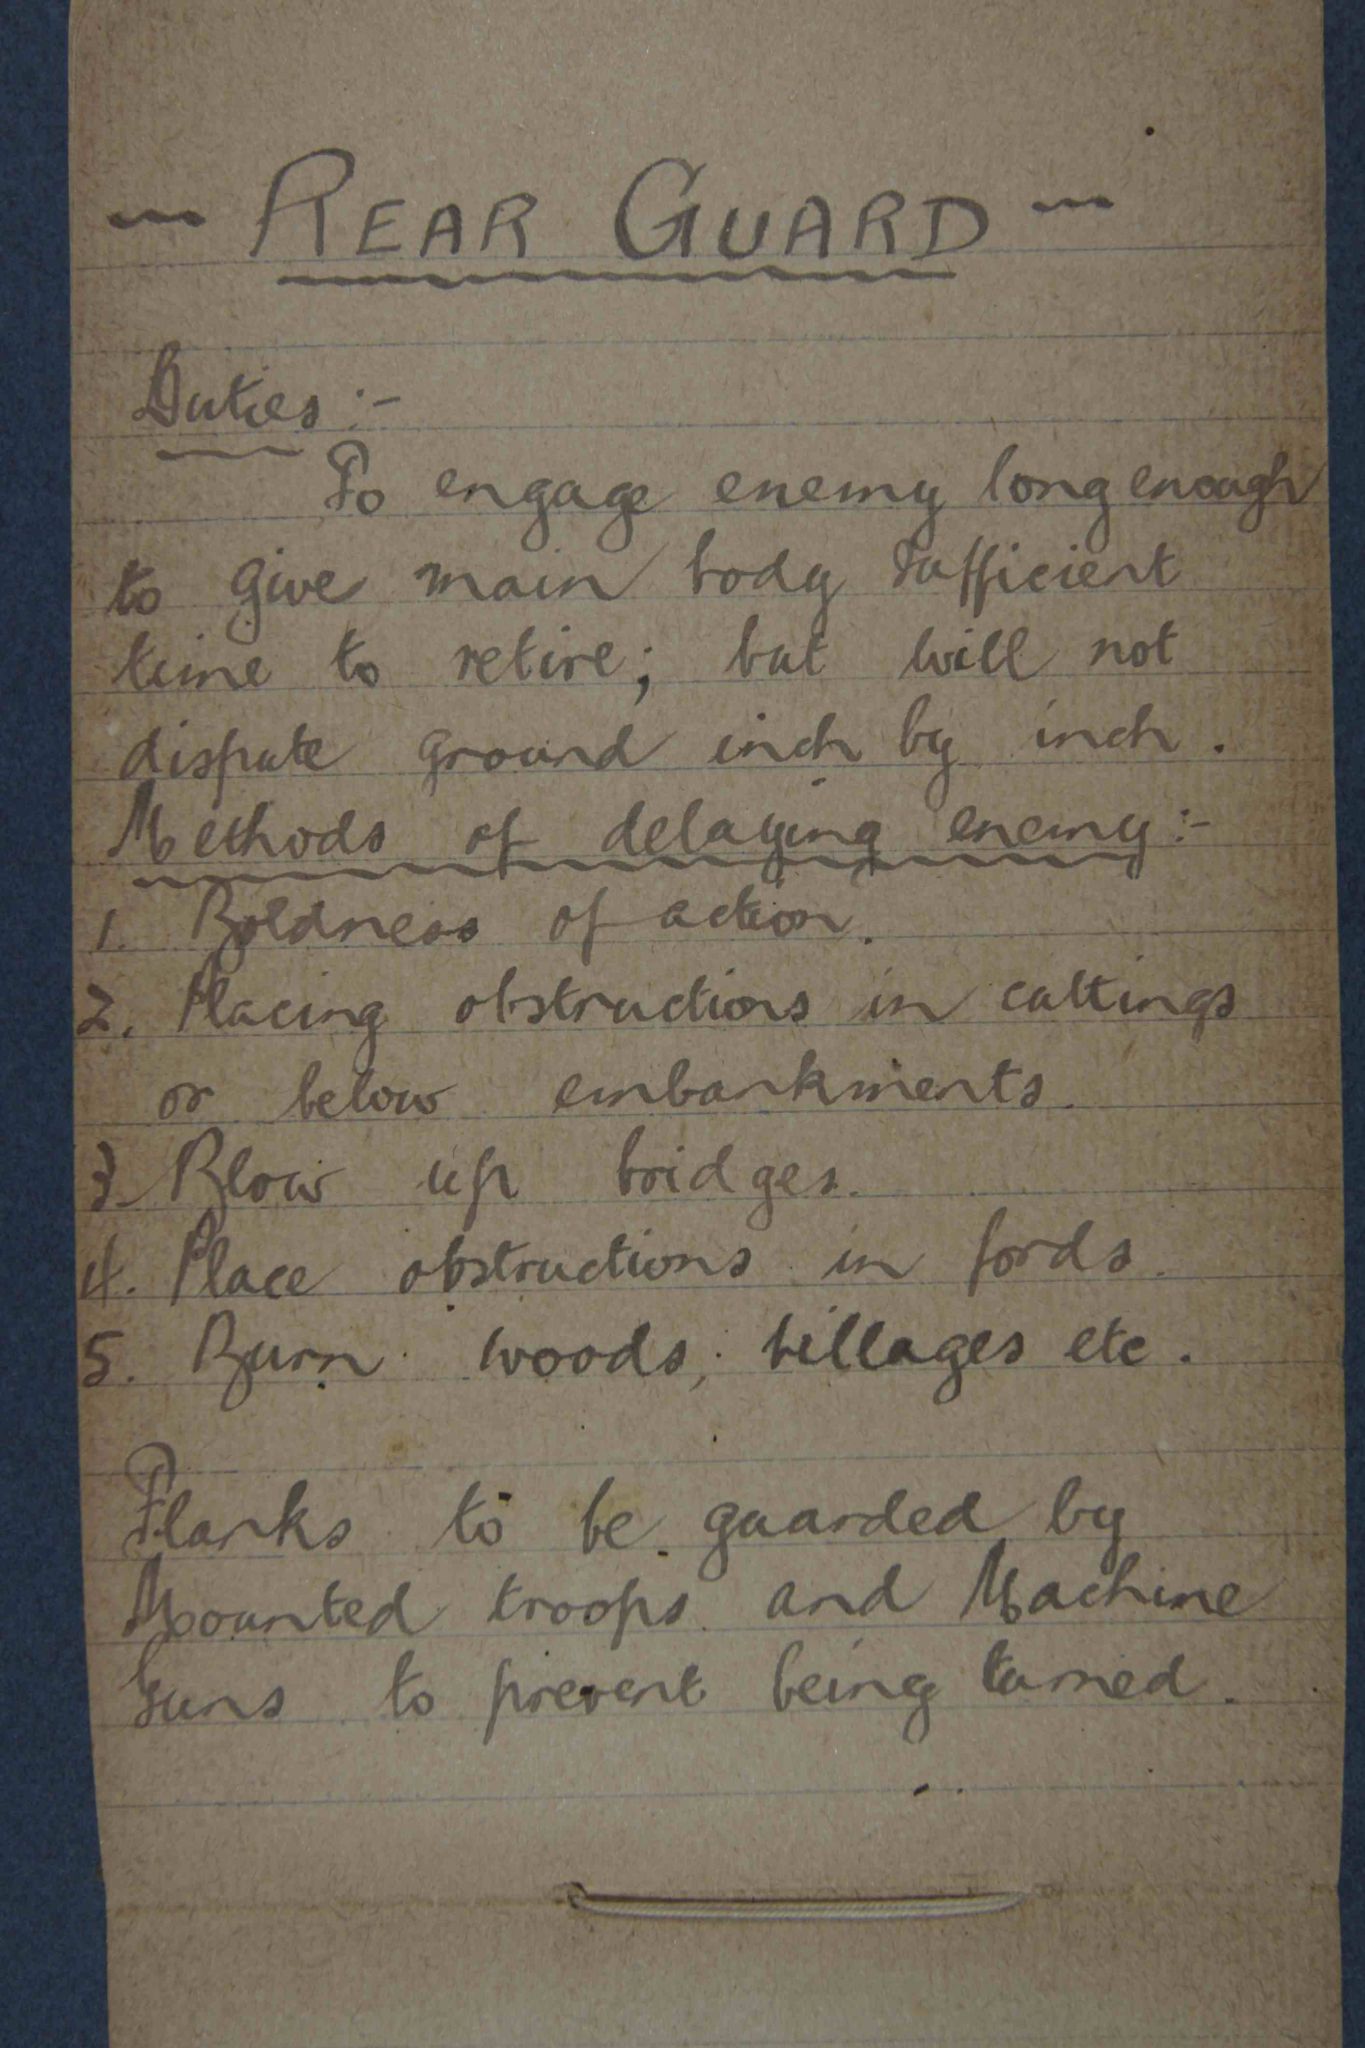 ~ REAR GUARD ~
Duties :-
To engage enemy long enough
to give main body sufficient
time to retire; but will not
dispute ground inch by inch.
Methods of delaying enemy :-
1. Boldness of action.
2. Placing obstructions in cuttings
or below embankments.
3. Blow up bridges.
4. Place obstructions in fords.
5. Burn woods, villages etc.
Flanks to be guarded by
Mounted troops and Machine
Guns to prevent being turned.